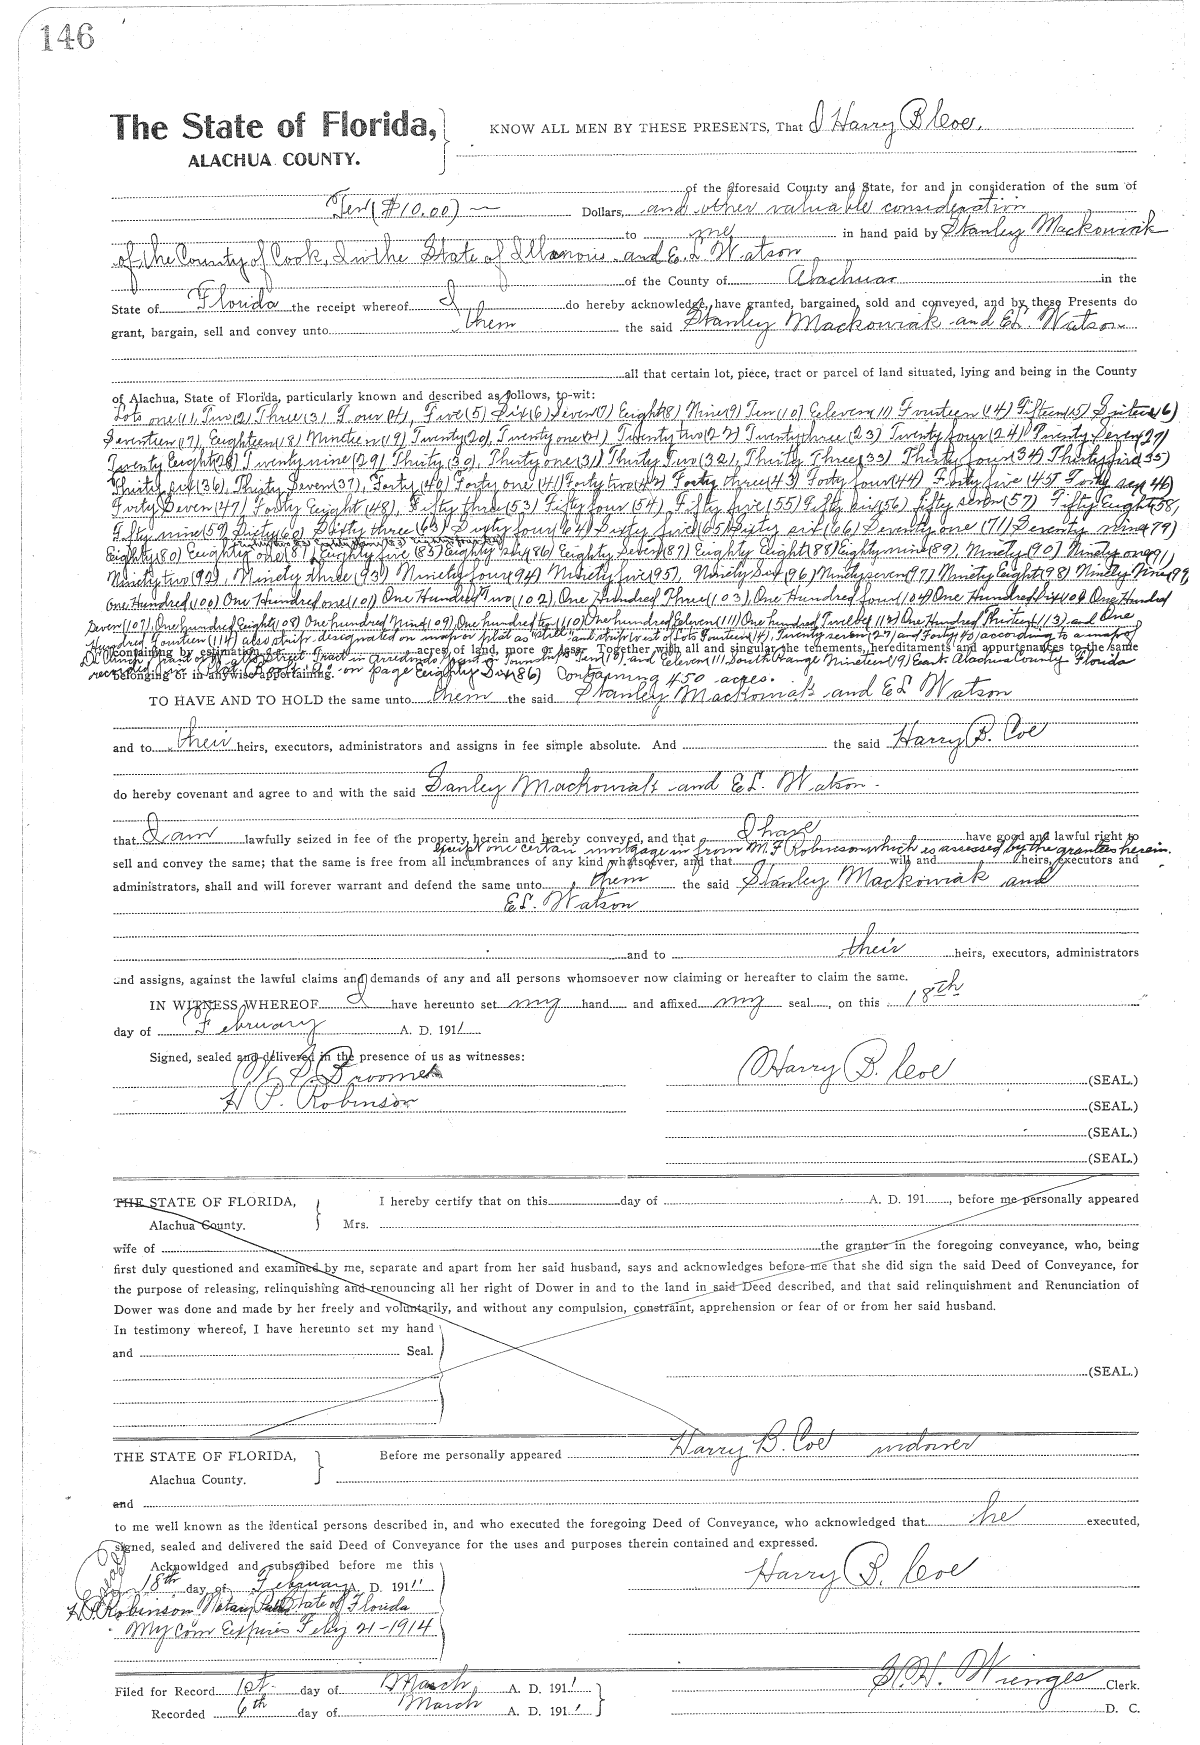 146
The State of Florida, KNOW ALL MEN BY THESE PRESENTS, That I Harry B Coe,
ALACHUA COUNTY.
of the aforesaid County and State, for and in consideration of the sum of
Ten ($10.00) — Dollars, and other valuable consideration
to me in hand paid by Stanley Mackowiak
of the County of Cook, In the State of and E L Watson
of the County of Alachua in the
State of Florida the receipt whereof I do hereby acknowledge, have granted, bargained, sold and conveyed, and by these Presents do
grant, bargain, sell and convey unto them the said Stanley Mackowiak and E L Watson
all that certain lot, piece, tract or parcel of land situated, lying and being in the County
of Alachua, State of Florida, particularly known and described as follows, to-wit:
Lots one (1), Two (2) Three (3) Four (4), Five (5) Six (6) Seven (7) Eight (8) Nine (9) Ten (10) Eeleven (11) Fourteen (14) Fifteen (15) Sixteen (16)
Seventeen (17), Eighteen (18) Nineteen (19) Twenty (20), Twenty one (21) Twenty two (22) Twenty three (23) Twenty four (24) Twenty Seven (27)
Twenty Eight (28) Twenty nine (29) Thirty (30), Thirty one (31) Thirty Two (32), Thirty Three (33) Thirty four (34) Thirty five (35)
Thirty six (36), Thirty Seven (37), Forty (40) Forty one (41) Forty two (42) Forty three (43) Forty four (44) Forty five (45) Forty six (46)
Forty Seven (47) Forty Eight (48), Fifty three (53) Fifty four (54), Fifty five (55) Fifty six (56) fifty seven (57) Fifty Eight (58),
Fifty nine (59) Sixty (60) Sixty three (63) Sixty four (64) Sixty five (65) Sixty six (66) Seventy one (71) Seventy nine (79)
Eighty (80) Eighty one (81) Eighty five (85) Eighty six (86) Eighty Seven (87) Eighty Eight (88) Eighty nine (89), Ninety (90) Ninety one (91)
Ninety two (92), Ninety three (93) Ninety four (94) Ninety five (95), Ninety Six (96) Ninety seven (97) Ninety Eight (98) Ninety Nine (99)
One Hundred (100) One Hundred one (101), One Hundred Two (102), One Hundred Three (103), One Hundred four (104) One Hundred six (106) One Hundred
Seven (107), One hundred Eight (108) One Hundred Nine (109), One hundred ten (110) One hundred Eeleven (111) One hundred Twelve (112) One Hundred Thirteen (113), and One
Hundred Fourteen (114) also strip designated on map or plat as "still" and strip west of Lots Fourteen (14), Twenty seven (27) and Forty 40, according to a map of
containing by estimation acres of land, more or less. Together with all and singular the tenements, hereditaments and appurtenances to the same
Tract in Arredondo Grant in Township Ten (10) and Eeleven (11) South Range Nineteen (19) East. Alachua County Florida
belonging or in anywise appertaining.
on page Eighty Six (86) Containing 450 acres.
TO HAVE AND TO HOLD the same unto them the said Stanley Mackowiak and E L Watson
and to their heirs, executors, administrators and assigns in fee simple absolute. And the said Harry B. Coe
do hereby covenant and agree to and with the said Sanley Mackowiak and E L. Watson.
that I am lawfully seized in fee of the property herein and hereby conveyed, and that I have have good and lawful right to
except one certain mortgage from M. F Robinson which is assessed by the grantees herein.
sell and convey the same; that the same is free from all incumbrances of any kind whatsoever, and that will and heirs, executors and
administrators, shall and will forever warrant and defend the same unto them the said Stanley Mackowiak and
E L. Watson
and to their heirs, executors, administrators
and assigns, against the lawful claims and demands of any and all persons whomsoever now claiming or hereafter to claim the same.
IN WITNESS WHEREOF I have hereunto set my hand and affixed my seal, on this 18th
day of February A. D. 1911
Signed, sealed and delivered in the presence of us as witnesses:
S. Broome Harry B. Coe (SEAL.)
H P. Robinson (SEAL.)
(SEAL.)
(SEAL.)
THE STATE OF FLORIDA, I hereby certify that on this day of A. D. 191 , before me personally appeared
Alachua County. Mrs.
wife of the grantor in the foregoing conveyance, who, being
first duly questioned and examined by me, separate and apart from her said husband, says and acknowledges before me that she did sign the said Deed of Conveyance, for
the purpose of releasing, relinquishing and renouncing all her right of Dower in and to the land in said Deed described, and that said relinquishment and Renunciation of
Dower was done and made by her freely and voluntarily, and without any compulsion, constraint, apprehension or fear of or from her said husband.
In testimony whereof, I have hereunto set my hand
and Seal.
(SEAL.)
THE STATE OF FLORIDA, Before me personally appeared Harry B. Coe widower
Alachua County.
and
to me well known as the identical persons described in, and who executed the foregoing Deed of Conveyance, who acknowledged that he executed,
signed, sealed and delivered the said Deed of Conveyance for the uses and purposes therein contained and expressed.
Acknowldged and subscribed before me this Harry B. Coe
18th day of February A. D. 1911
H. P. Robinson Notary Public State of Florida
My Com Expires Feby 21-1914
Filed for Record 1st day of March A. D. 1911 S. H. Wienges Clerk.
Recorded 6th day of March A. D. 1911 D. C.